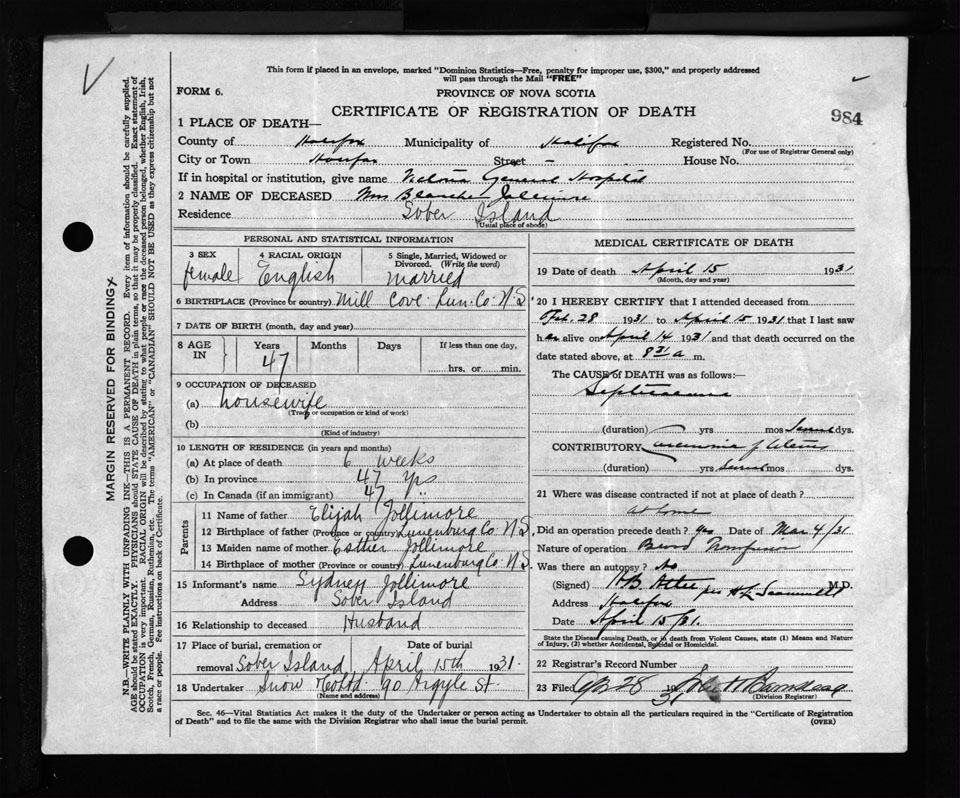 This form if placed in an envelope, marked "Dominion Statistics—Free, penalty for improper use, $300," and properly addressed
will pass through the Mail "FREE"
FORM 6.
PROVINCE OF NOVA SCOTIA
CERTIFICATE OF REGISTRATION OF DEATH
984
1 PLACE OF DEATH—
County of Halifax Municipality of Halifax Registered No.
(For use of Registrar General only)
City or Town Halifax Street — House No.
If in hospital or institution, give name Victoria General Hospital
2 NAME OF DECEASED Mrs Blanche Jolimore
Residence Sober Island
(Usual place of abode)
PERSONAL AND STATISTICAL INFORMATION
3 SEX 4 RACIAL ORIGIN 5 Single, Married, Widowed or
Divorced. (Write the word)
female English married
6 BIRTHPLACE (Province or country) Mill Cove Lun. Co. N.S.
7 DATE OF BIRTH (month, day and year)
8 AGE IN Years Months Days If less than one day,
47 hrs. or min.
9 OCCUPATION OF DECEASED
(a) housewife
(Trade or occupation or kind of work)
(b)
(Kind of industry)
10 LENGTH OF RESIDENCE (in years and months)
(a) At place of death 6 weeks
(b) In province 47 yrs
(c) In Canada (if an immigrant) 47 "
Parents
11 Name of father Elijah Jollimore
12 Birthplace of father (Province or country) Lunenburg Co. N.S.
13 Maiden name of mother Esther Jollimore
14 Birthplace of mother (Province or country) Lunenburg Co. N.S.
15 Informant's name Sydney Jollimore
Address Sober Island
16 Relationship to deceased Husband
17 Place of burial, cremation or Date of burial
removal Sober Island April 15th 1931.
18 Undertaker Snow & Co Ltd. 90 Argyle St.
(Name and address)
MEDICAL CERTIFICATE OF DEATH
19 Date of death April 15 1931
(Month, day and year)
20 I HEREBY CERTIFY that I attended deceased from
Feb. 28 1931 to April 15 1931 that I last saw
her alive on April 14 1931 and that death occurred on the
date stated above, at a m.
The CAUSE of DEATH was as follows:—
Septicaemia
(duration) yrs mos dys.
CONTRIBUTORY of Uterus
(duration) yrs mos dys.
21 Where was disease contracted if not at place of death?
at home
Did an operation precede death? yes Date of Mar 4/31
Nature of operation Blood Transfusion
Was there an autopsy? No
(Signed) H.B. Atlee per M.D.
Address Halifax
Date April 15/31.
State the Disease causing Death, or in death from Violent Causes, state (1) Means and Nature
of Injury, (2) whether Accidental, Suicidal or Homicidal.
22 Registrar's Record Number
23 Filed Apr 28 1931
(Division Registrar)
Sec. 46—Vital Statistics Act makes it the duty of the Undertaker or person acting as Undertaker to obtain all the particulars required in the "Certificate of Registration
of Death" and to file the same with the Division Registrar who shall issue the burial permit.
(OVER)
MARGIN RESERVED FOR BINDING
N.B.—WRITE PLAINLY WITH UNFADING INK—THIS IS A PERMANENT RECORD. Every item of information should be carefully supplied.
AGE should be stated EXACTLY. PHYSICIANS should STATE CAUSE OF DEATH in plain terms, so that it may be properly classified. Exact statement of
OCCUPATION is very important. RACIAL ORIGIN will be described by stating to what people or race the deceased person belonged, whether English, Irish,
Scotch, French, German, Russian, Ruthenian, etc. The terms "AMERICAN" or "CANADIAN" SHOULD NOT BE USED as they express citizenship but not
a race or people. See instructions on back of Certificate.